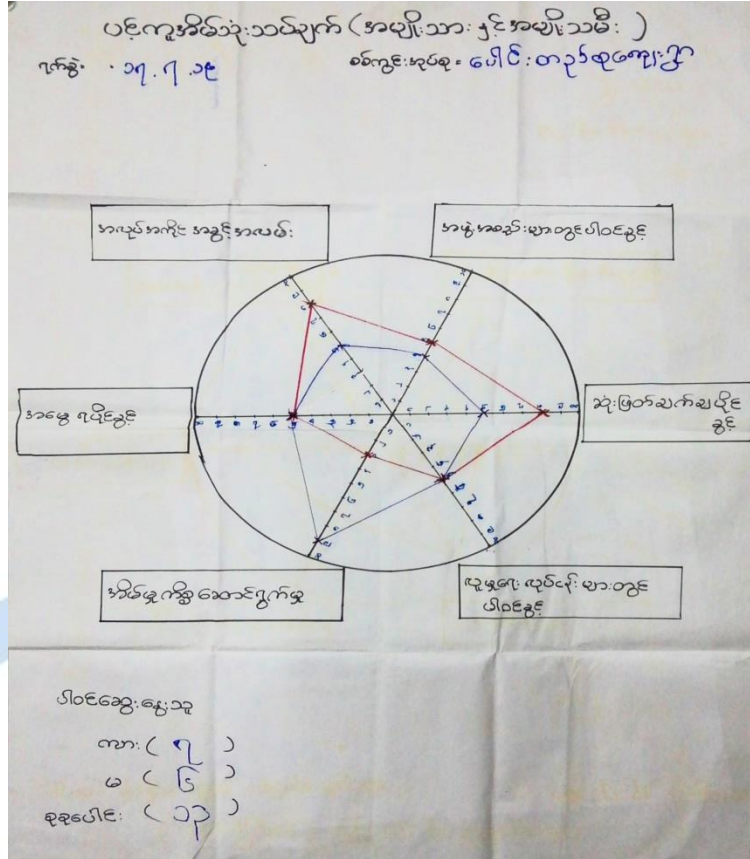 ပင့်ကူအိမ်သုံးသပ်ချက် (အမျိုးသား နှင့် အမျိုးသမီး )
ရက်စွဲ - ၁၇.၇.၁၉
စစ်ကွင်းအုပ်စု - ပေါင်းတည်စုကျေးရွာ
အလုပ်အကိုင် အခွင့်အလမ်း
အဖွဲ့အစည်းများတွင်ပါဝင်ခွင့်
အမွေ ရပိုင်ခွင့်
ဆုံးဖြတ်ချက်ချပိုင်
ခွင့်
အိမ်မှုကိစ္စ ဆောင်ရွက်မှု
လူမှုရေး လုပ်ငန်း များတွင်
ပါဝင်ခွင့်
ပါဝင်ဆွေးနွေးသူ
ကျား ( ၇ )
မ ( ၆ )
စုစုပေါင်း ( ၁၃ )